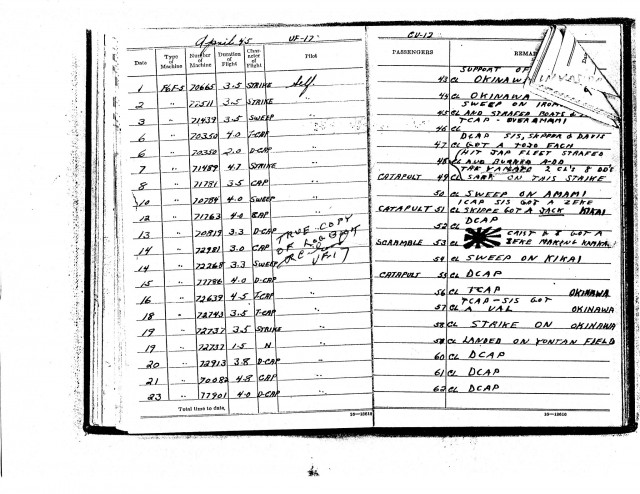 April 45 VF-17
Date Type of Machine Number of Machine Duration of Flight Character of Flight Pilot
1 F6F-5 70665 3.5 STRIKE Self.
2 " 72511 3.5 STRIKE "
3 " 71439 3.5 SWEEP "
6 " 70350 4.0 T-CAP "
6 " 70350 2.0 D-CAP "
7 " 71489 4.7 STRIKE "
8 " 71781 3.5 CAP "
10 " 70784 4.0 SWEEP "
12 " 71763 4.0 CAP "
13 " 70819 3.3 D-CAP
14 " 72981 3.0 CAP
14 " 72268 3.3 SWEEP
TRUE COPY
OF LOG BOOK
VF17
15 " 77786 4.0 D-CAP "
16 " 72639 4.5 T-CAP "
18 " 72743 3.5 T-CAP "
19 " 72737 3.5 STRIKE "
19 " 72737 1.5 N "
20 " 72913 3.8 D-CAP "
21 " 70082 4.8 CAP "
23 " 77901 4.0 D-CAP "
Total time to date,
16—18616
CV-12
PASSENGERS REMA
SUPPORT OF
43 CL OKINAWA
44 CL OKINAWA
SWEEP ON
45 CL AND STRAFED BOATS
TCAP - OVER AMAMI
46 CL
DCAP SIS, SKIPPER & DAVIS
47 CL GOT A TOJO EACH
HIT JAP FLEET STRAFED
48 CL AND BURNED A DD
THE YAMATO 2 CL'S 8 DD'S
CATAPULT 49 CL SANK ON THIS STRIKE
50 CL SWEEP ON AMAMI
CAP SIS GOT A ZEKE
CATAPULT 51 CL SKIPPE GOT A JACK KIKAI
52 CL DCAP
GOT A
SCRAMBLE 53 CL ZEKE MAKING KAMIKA
54 CL SWEEP ON KIKAI
CATAPULT 55 CL DCAP
56 CL TCAP OKINAWA
TCAP-SIS GOT
57 CL A VAL OKINAWA
58 CL STRIKE ON OKINAWA
58 CL LANDED ON YONTAN FIELD
60 CL DCAP
61 CL DCAP
62 CL DCAP
16—18616